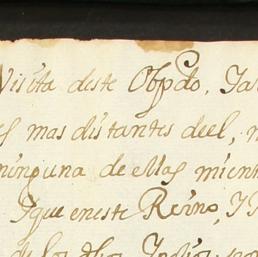 Visita deste Obpdo, Ya
es mas distantes deel, n
ninguna de ellas mient
Yque eneste Reino, y
de los dhos Indios, po